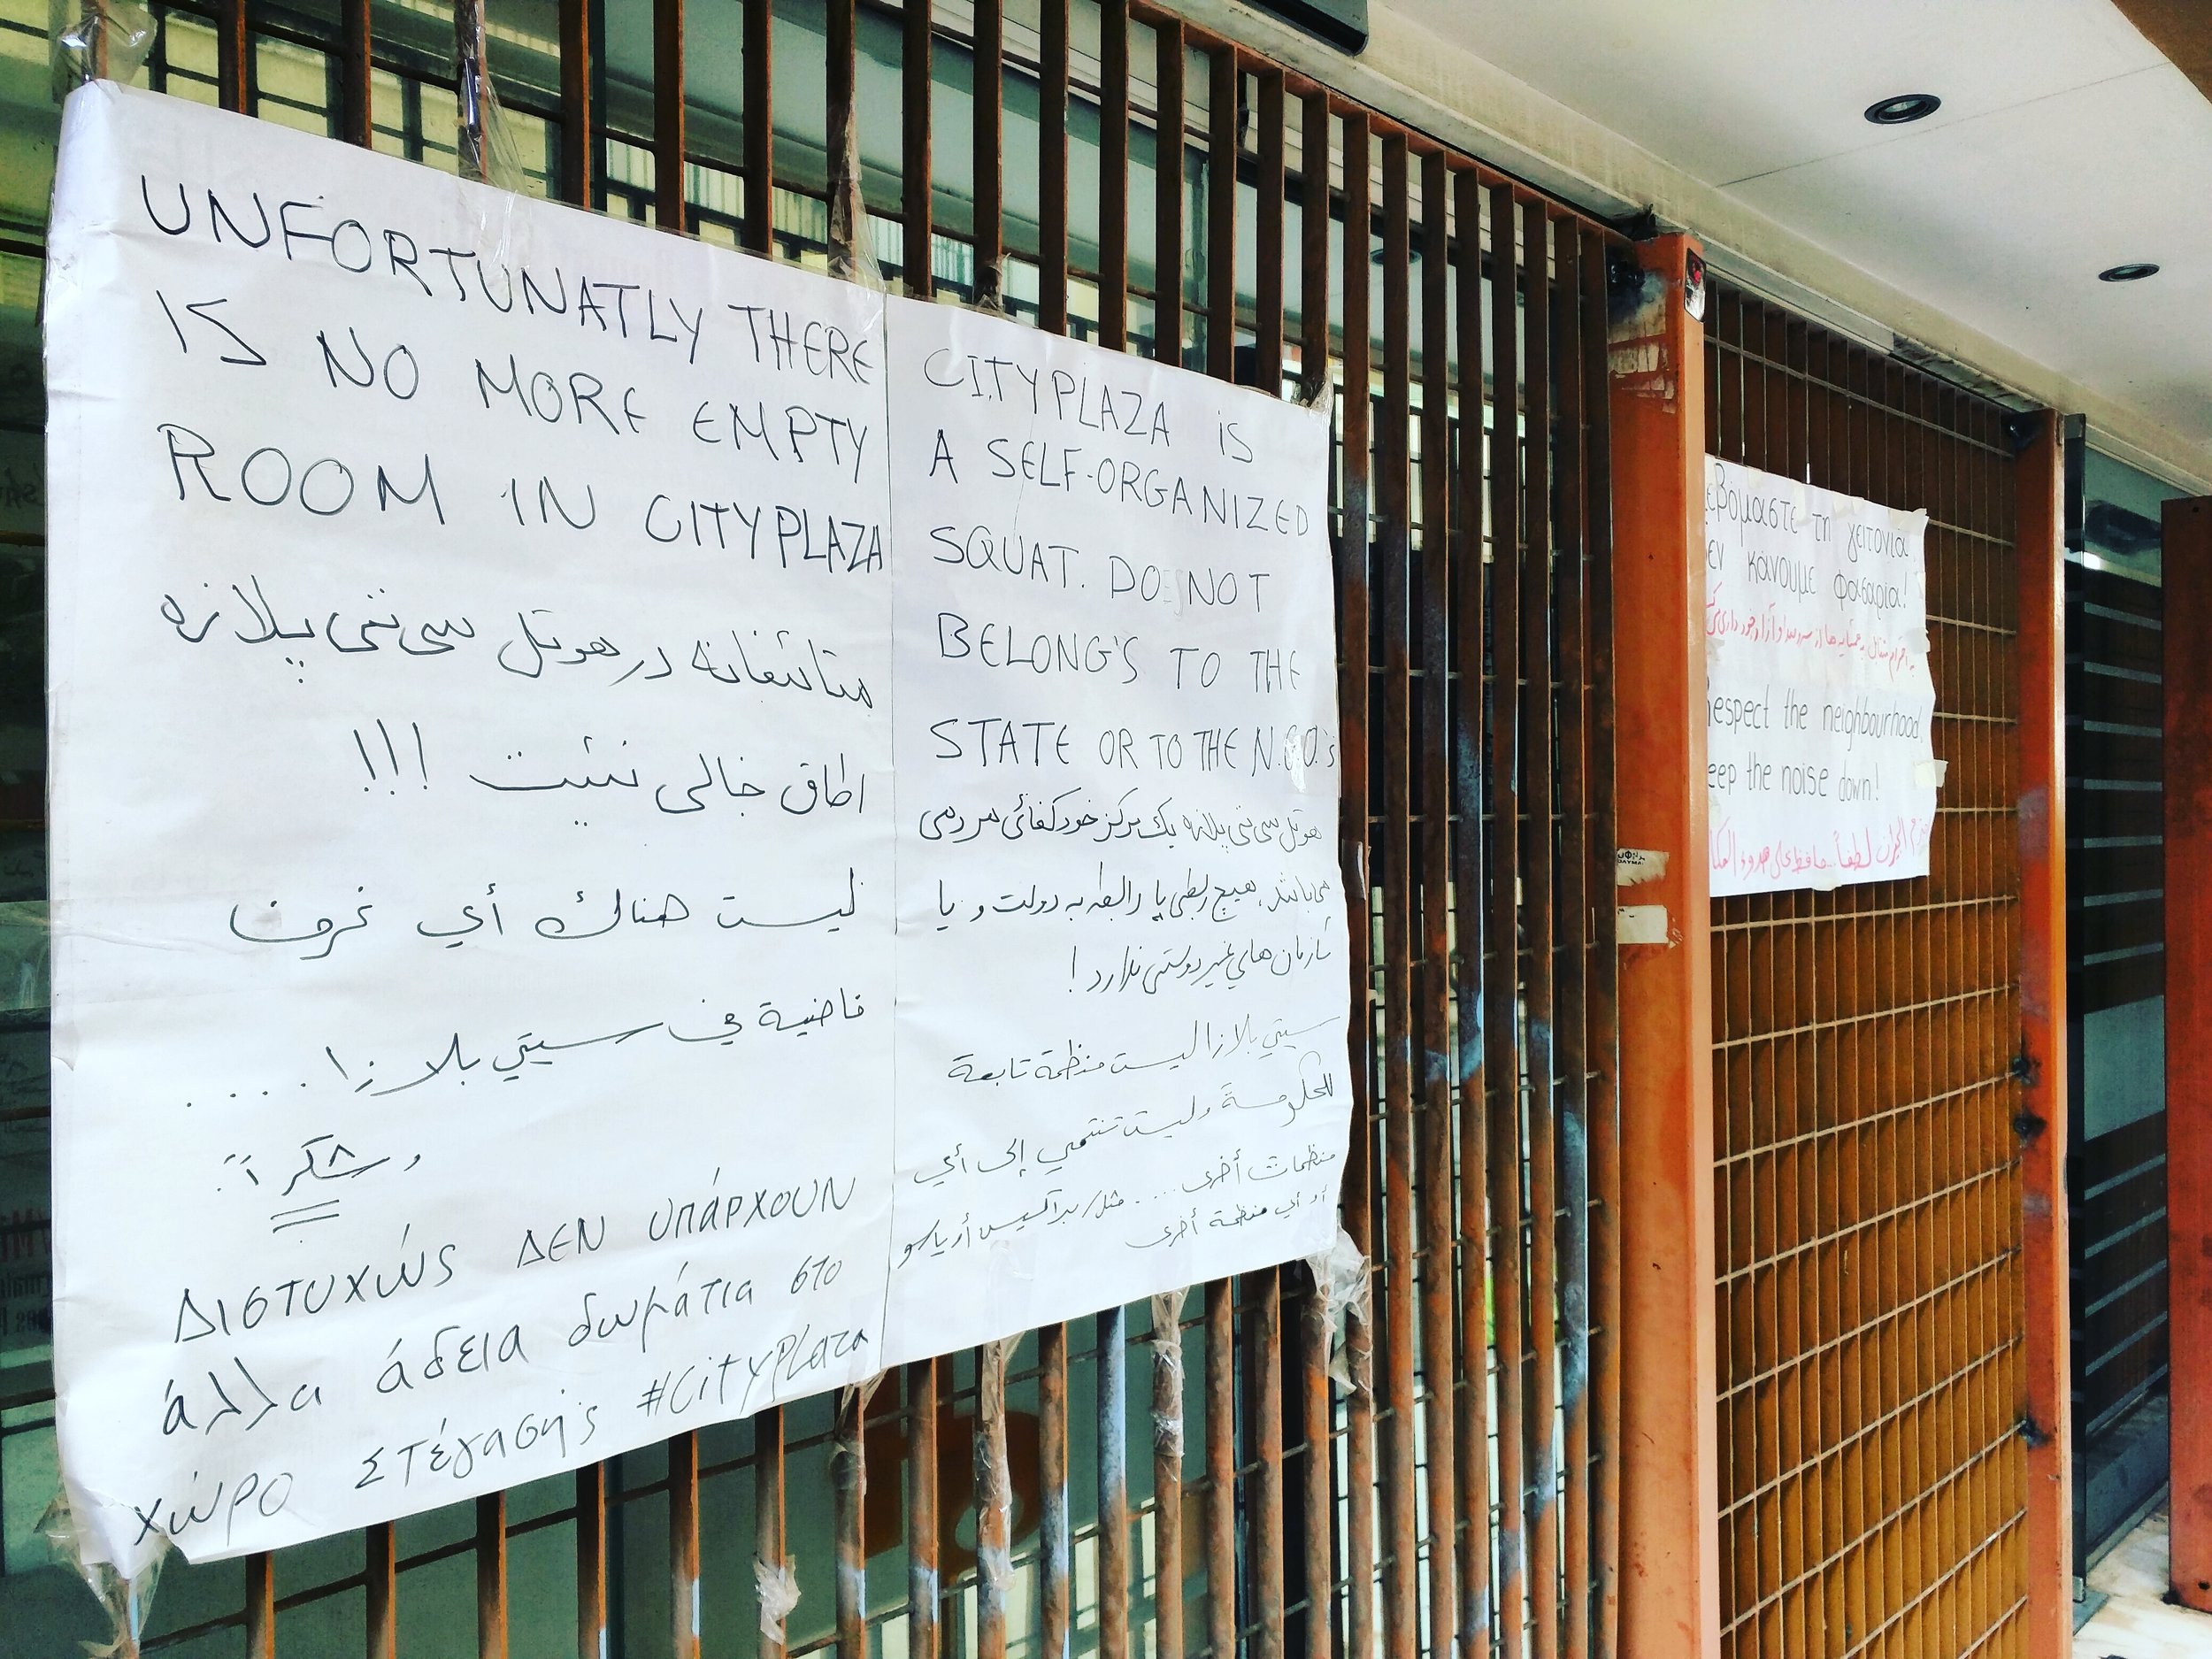 UNFORTUNATLY THERE
IS NO MORE EMPTY
ROOM IN CITYPLAZA
متائفانه در هوتل سی تی پلازه
اطاق خالی نیست !!!
ليست هناك أي غرف
فاضية في سيتي بلازا ....
وشكراً
ΔΙστυχώς ΔΕΝ υπάρχουν
άλλα άδεια δωμάτια στο
χώρο Στέγασής #CityPlaza
CITYPLAZA iS
A SELF-ORGANIZED
SQUAT. DOES NOT
BELONG'S TO THE
STATE OR TO THE N.G.O.'s
هوتل سی تی پلازه یک مرکز خودکفائی مردمی
می باشد. هیچ ربطی یا رابطه به دولت و یا
سازمان های غیر دولتی ندارد !
سيتي بلازا ليست منظمة تابعة
للحكومة وليست تنتمي إلى أي
منظمات أخرى ..... مثل براكسيس أو ياسو
أو أي منظمة أخرى
εβόμαστε τη γειτονιά
εν κάνουμε φασαρία!
espect the neighbourhood,
eep the noise down!
لطفاً..حافظ على هدوء المكا